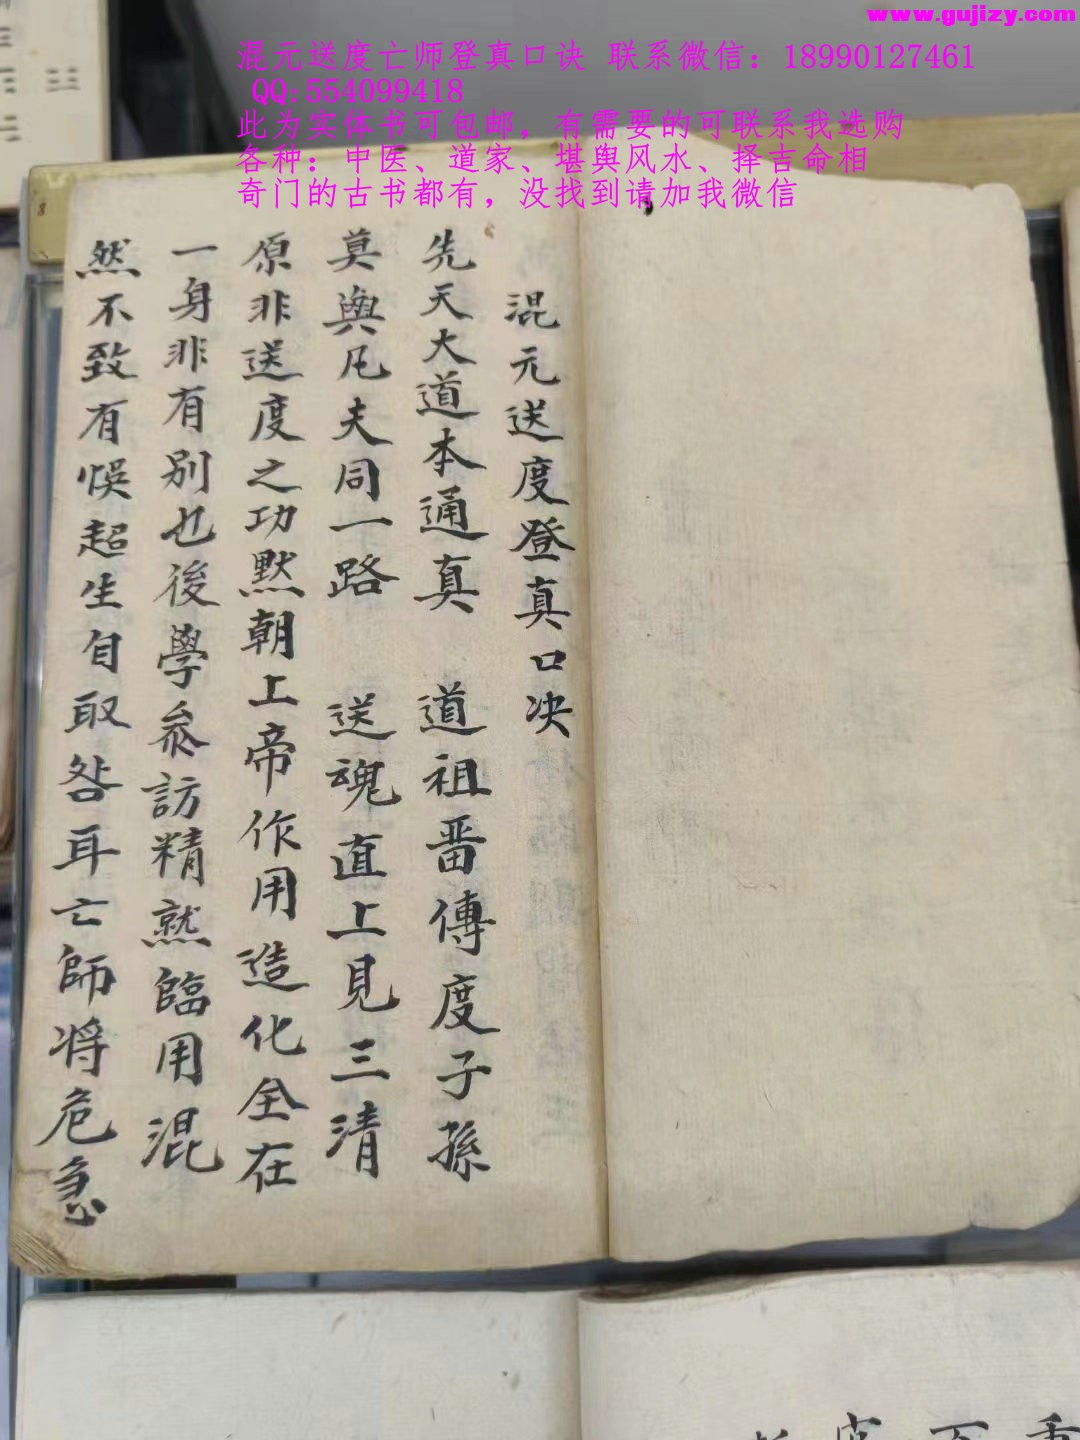 www.gujizy.com
混元送度亡师登真口诀 联系微信：18990127461
QQ:554099418
此为实体书可包邮，有需要的可联系我选购
各种：中医、道家、堪舆风水、择吉命相
奇门的古书都有，没找到请加我微信
混元送度登真口决
先天大道本通真 道祖畱傳度子孫
莫與凡夫同一路 送魂直上見三清
原非送度之功默朝上帝作用造化全在
一身非有別也後學叅訪精熟臨用混
然不致有悮超生自取咎耳亡師将危急